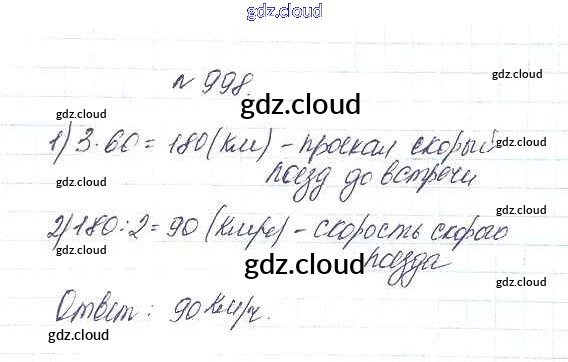 gdz.cloud
gdz.cloud
N 998.
gdz.cloud
gdz.cloud
gdz.cloud
1) 3·60=180(км) - проехал скорый
gdz.cloud
gdz.cloud
поезд до встречи
gdz.cloud
2) 180:2=90 (км/ч) - скорость скорого
gdz.cloud
gdz.cloud
поезда
Ответ: 90 км/ч.
gdz.cloud
gdz.cloud